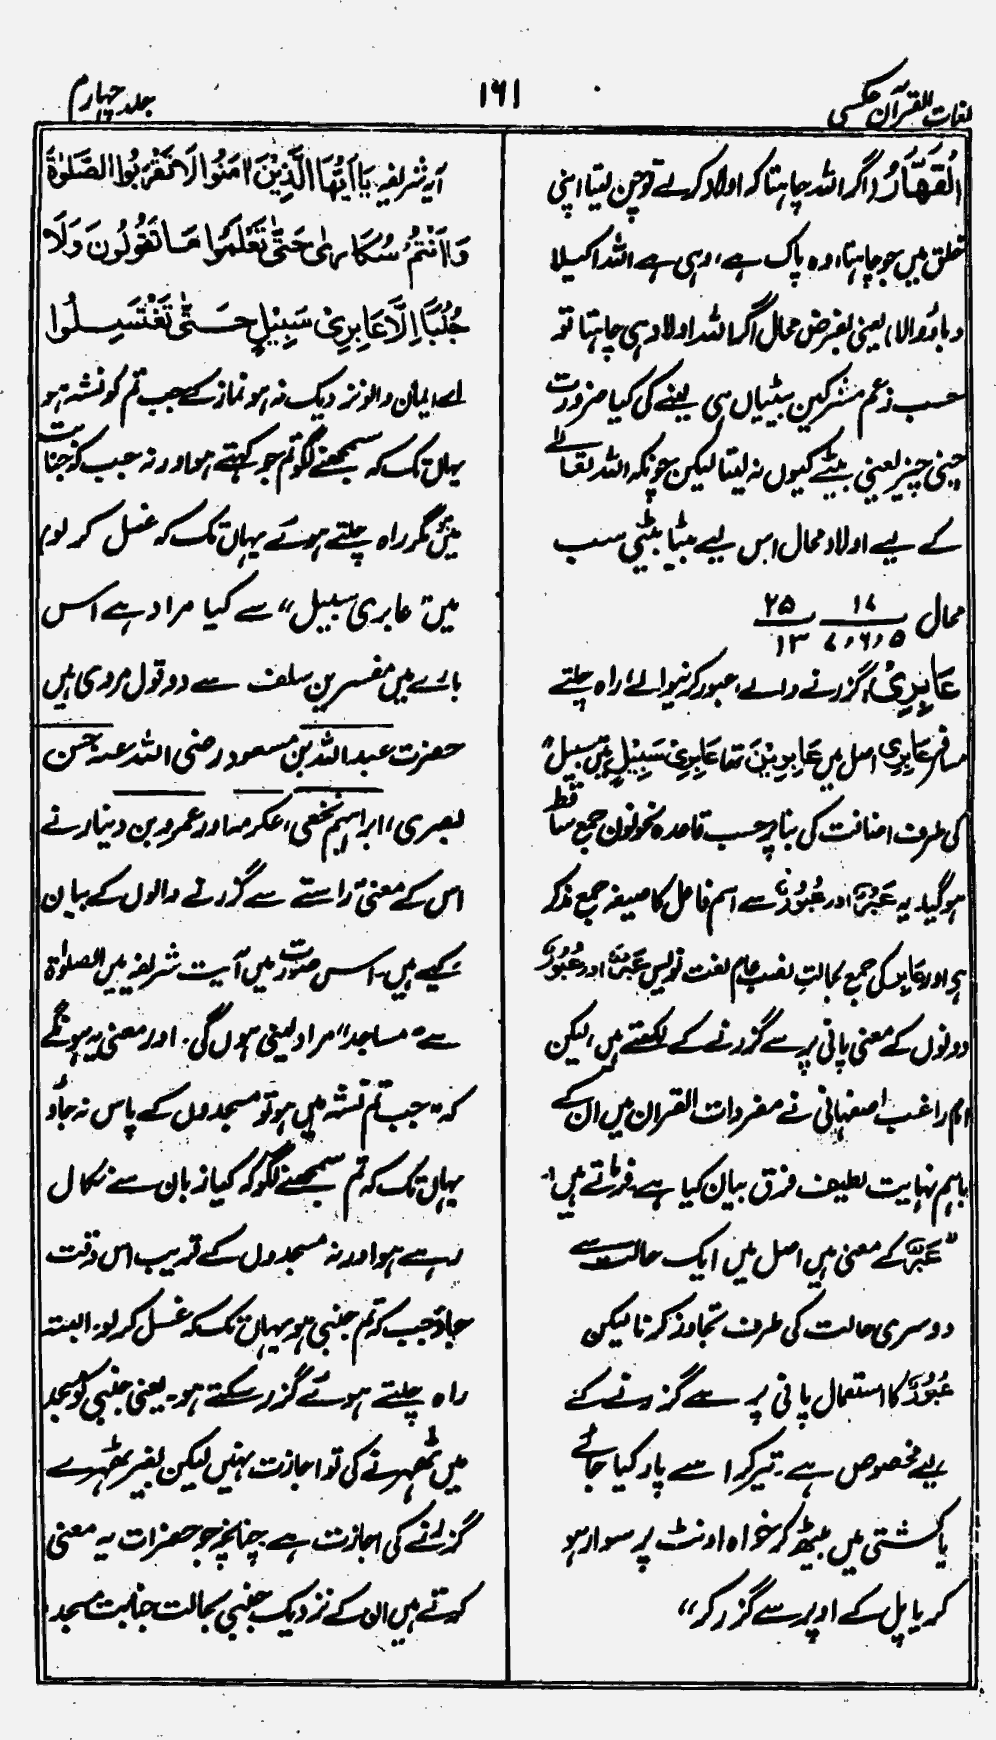 لغات القرآن عکسی
۱۶۱
جلد چہارم
الْقَهَّارُ (اگر اللہ چاہتا کہ اولاد کرلے تو چن لیتا اپنی
خلق میں جو چاہتا، وہ پاک ہے، وہی ہے اللہ اکیلا
دباؤ والا) یعنی بفرض محال اگر اللہ اولاد ہی چاہتا تو
حسب زعم مشرکین بیٹیاں ہی لینے کی کیا ضرورت
چنی چیز یعنی بیٹے کیوں نہ لیتا لیکن چونکہ اللہ تعالے
کے لیے اولاد محال اس لیے بیٹا بیٹی سب
محال ۱۷ ۲۵
۵،۶،۷ ۱۳
عَابِرِیْ گزرنے والے، عبور کرنیوالے، راہ چلتے
مسافر عَابِرِی اصل میں عَابِرِیْنَ تھا عَابِرِیْ سَبِیْلٍ میں سبیل
کی طرف اضافت کی بنا پر حسب قاعدہ نحو نون جمع ساقط
ہو گیا۔ یہ عَبْرٌ اور عُبُوْرٌ سے اسم فاعل کا صیغہ جمع مذکر
ہے اور عَابِر کی جمع بحالتِ نصب عام لغت نویس عَبْرٌ اور عُبُوْرٌ
دونوں کے معنی پانی پر سے گزرنے کے لکھتے ہیں، لیکن
امام راغب اصفہانی نے مفردات القرآن میں ان کے
باہم نہایت لطیف فرق بیان کیا ہے۔ فرماتے ہیں:۔
"عَبْرٌ کے معنی ہیں اصل میں ایک حالت سے
دوسری حالت کی طرف تجاوز کرنا لیکن
عُبُوْرٌ کا استعمال پانی پر سے گزرنے کے
لیے مخصوص ہے۔ تیر کر اسے پار کیا جائے
یا کشتی میں بیٹھ کر خواہ اونٹ پر سوار ہو
کر یا پل کے اوپر سے گزر کر"
آیہ شریفہ یٰاَیُّهَا الَّذِیْنَ اٰمَنُوا لَا تَقْرَبُوا الصَّلٰوةَ
وَاَنْتُمْ سُكَارٰى حَتّٰى تَعْلَمُوا مَا تَقُولُونَ وَلَا
جُنُبًا اِلَّا عَابِرِیْ سَبِیْلٍ حَتّٰى تَغْتَسِلُوا
اے ایمان والو نزدیک نہ ہو نماز کے جب تم کو نشہ ہو
یہاں تک کہ سمجھنے لگو تم جو کہتے ہو اور نہ جب کہ جنابت
میں ہو مگر راہ چلتے ہوئے یہاں تک کہ غسل کر لو،
میں "عابری سبیل" سے کیا مراد ہے اس
بارے میں مفسرین سلف سے دو قول مروی ہیں
حضرت عبداللہ بن مسعود رضی اللہ عنہ حسن
بصری، ابراہیم نخعی، عکرمہ اور عمرو بن دینار نے
اس کے معنی راستے سے گزرنے والوں کے بیان
کیے ہیں۔ اس صورت میں آیت شریفہ میں الصلوٰۃ
سے "مساجد" مراد لینی ہوں گی۔ اور معنی یہ ہونگے
کہ "جب تم نشہ میں ہو تو مسجدوں کے پاس نہ جاؤ
یہاں تک کہ تم سمجھنے لگو کہ کیا زبان سے نکال
رہے ہو اور نہ مسجدوں کے قریب اس وقت
جاؤ جب کہ تم جنبی ہو یہاں تک کہ غسل کر لو۔ البتہ
راہ چلتے ہوئے گزر سکتے ہو۔ یعنی جنبی کو مسجد
میں ٹھہرنے کی تو اجازت نہیں لیکن بغیر ٹھہرے
گزرنے کی اجازت ہے۔ چنانچہ جو حضرات یہ معنی
کرتے ہیں ان کے نزدیک جنبی بحالت جنابت مسجد